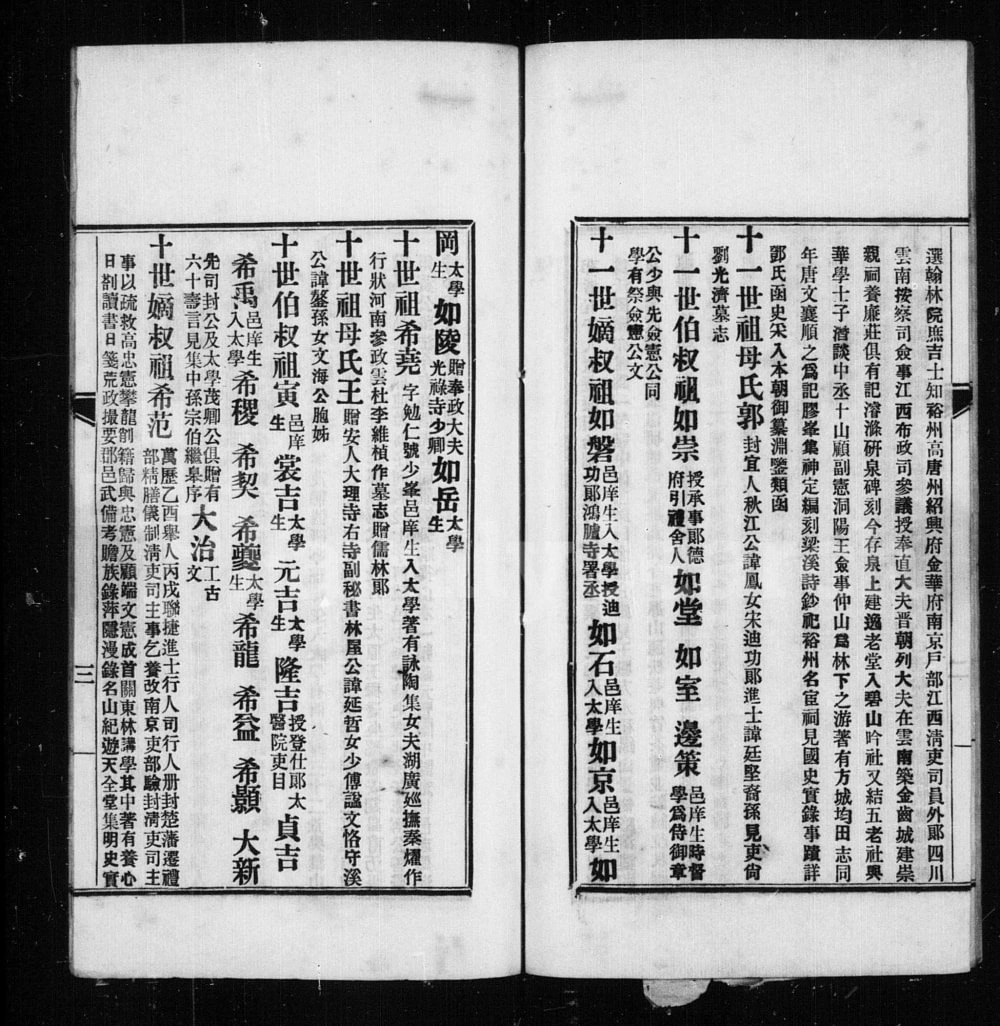 選翰林院庶吉士知裕州高唐州紹興府金華府南京戸部江西清吏司員外郞四川
雲南按察司僉事江西布政司參議授奉直大夫晋朝列大夫在雲南築金齒城建崇
親祠養廉莊俱有記濬滌硏泉碑刻今存泉上建逸老堂入碧山吟社又結五老社與
華學士子潛談中丞十山顧副憲洞陽王僉事仲山爲林下之游著有方城均田志同
年唐文襄順之爲記膠峯集神定編刻梁溪詩鈔祀裕州名宦祠見國史實錄事蹟詳
鄧氏函史采入本朝御纂淵鑒類函
十一世祖母氏郭封宜人秋江公諱鳳女宋迪功郞進士諱廷堅裔孫見吏尙
劉光濟墓志
十一世伯叔祖如崇授承事郞德府引禮舍人如堂 如室 邊策邑庠生時督學爲侍御章
公少與先僉憲公同學有祭僉憲公文
十一世嫡叔祖如磐邑庠生入太學授迪功郞鴻臚寺署丞如石邑庠生入太學如京邑庠生入太學如
岡太學生如陵贈奉政大夫光祿寺少卿如岳太學生
十世祖希堯字勉仁號少峯邑庠生入太學著有詠陶集女夫湖廣廵撫秦燿作
行狀河南參政雲杜李維楨作墓志贈儒林郞
十世祖母氏王贈安人大理寺右寺副秘書林屋公諱延哲女少傅諡文恪守溪
公諱鏊孫女文海公胞姊
十世伯叔祖寅邑庠生裳吉太學生元吉太學生隆吉授登仕郞太醫院吏目貞吉
希禹邑庠生入太學希稷 希契 希夔太學生希龍 希益 希顥 大新
先司封公及太學茂卿公俱贈有六十壽言見集中孫宗伯繼皋序大治工古文
十世嫡叔祖希范萬歷乙酉舉人丙戌聯捷進士行人司行人册封楚藩遷禮部精膳儀制淸吏司主事乞養改南京吏部驗封淸吏司主
事以疏救高忠憲攀龍削籍歸與忠憲及顧端文憲成首關東林講學其中著有養心日劄讀書日箋荒政撮要郡邑武備考贍族錄萍隱漫錄名山紀遊天全堂集明史實
三